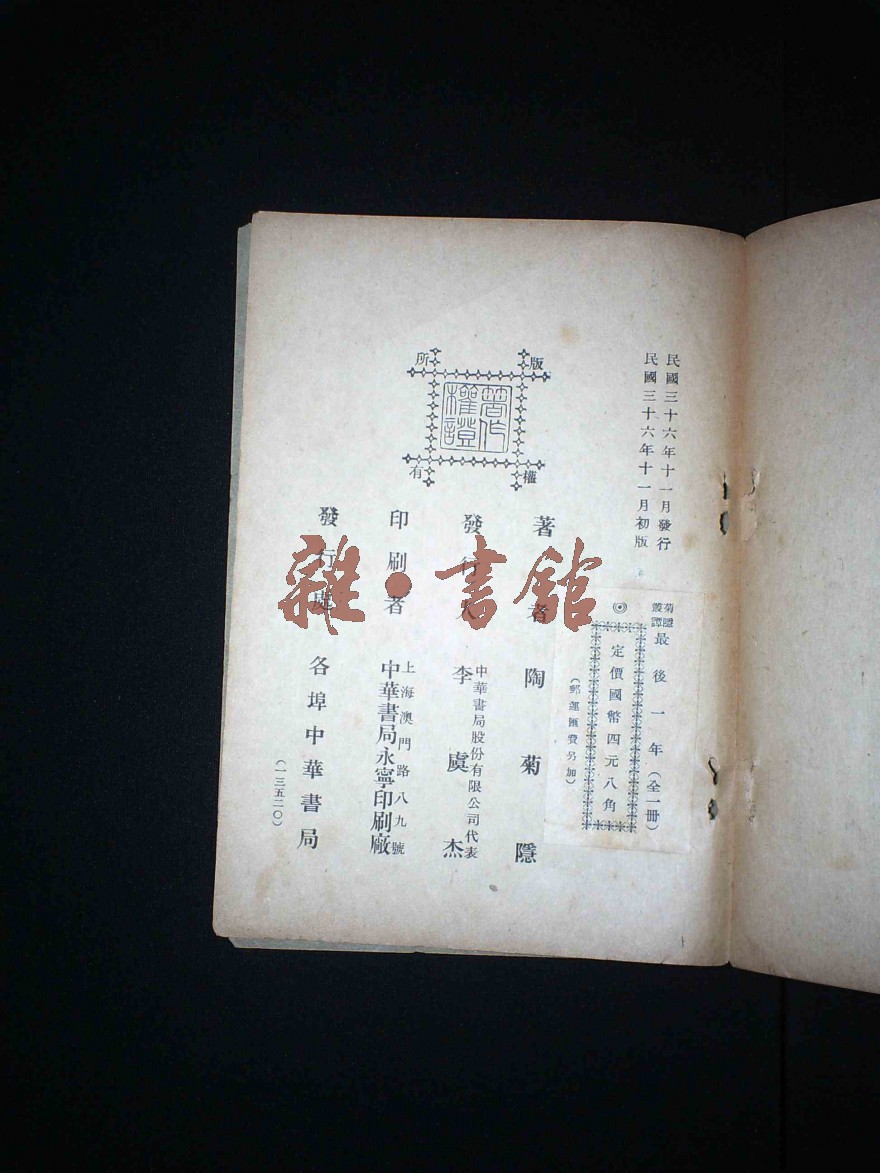 民國三十六年十一月發行
民國三十六年十一月初版
菊隱叢譚
最後一年(全一冊)
◎定價國幣四元八角
(郵運匯費另加)
版權所有
著作權證
著者 陶菊隱
中華書局股份有限公司代表
發行人 李虞杰
上海澳門路八九號
印刷者 中華書局永寧印刷廠
發行處 各埠中華書局
(一三五二〇)
雜·書館